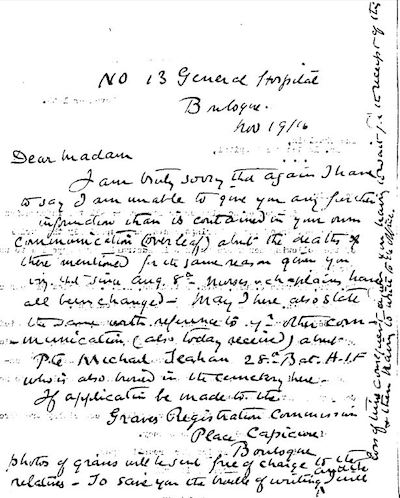 No 13 General Hospital
Boulogne.
Nov 19/16
Dear Madam
I am truly sorry that again I have
to say I am unable to give you any further
information than is contained in your own
communication (overleaf) about the deaths
there mentioned for the same reason given you
viz that since Aug. 8th Nurses & chaplains have
all been changed - May I here also state
the same with reference to yr other com-
-munication (also today received) about
Pte Michael Leahan 28th Bat. A.I.F
who is also buried in the cemetery here -
If application be made to the
Graves Registration Commission
Place Capicure
Boulogne
photos of graves will be sent free of charge to the
relatives - To save you the trouble of writing I will
loss of time consequent on your having to wait for the receipt of this
& then having to write to